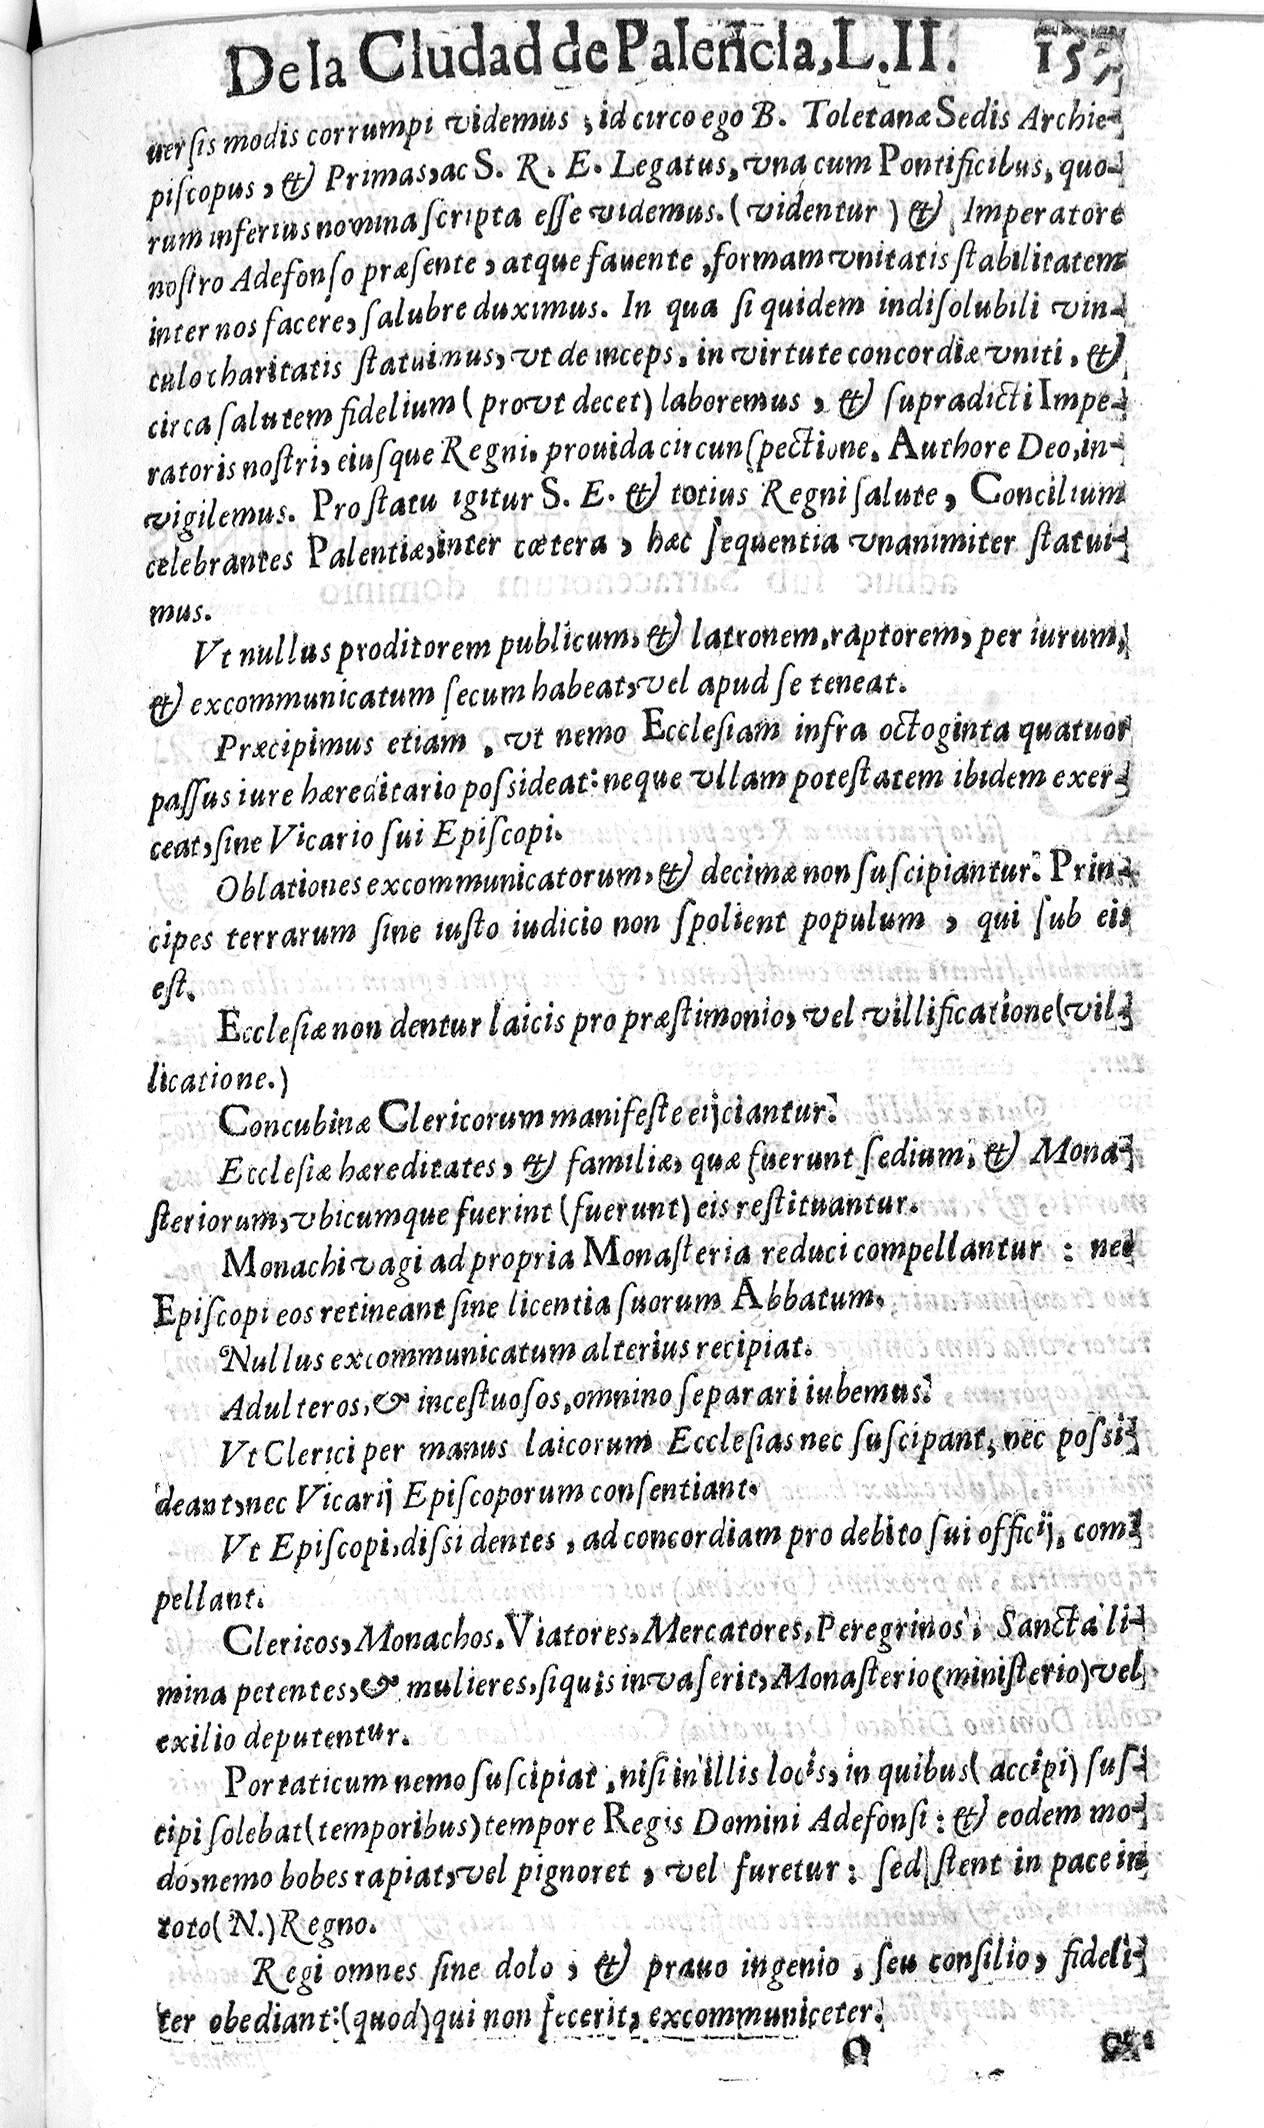 De la Ciudad de Palencia, L. II. 157
uersis modis corrumpi videmus, id circo ego B. Toletanæ Sedis Archie-
piscopus, & Primas, ac S. R. E. Legatus, vna cum Pontificibus, quo-
rum inferius nomina scripta esse videmus. (videntur) & Imperatore
nostro Adefonso præsente, atque fauente, formam vnitatis stabilitatem
inter nos facere, salubre duximus. In qua si quidem indisolubili vin-
culo charitatis statuimus, vt de inceps, in virtute concordiæ vniti, &
circa salutem fidelium (prout decet) laboremus, & supradicti Impe-
ratoris nostri, eiusque Regni, prouida circunspectione, Authore Deo, in-
vigilemus. Pro statu igitur S. E. & totius Regni salute, Concilium
celebrantes Palentiæ, inter cœtera, hæc sequentia vnanimiter statui-
mus.
Vt nullus proditorem publicum, & latronem, raptorem, per iurum,
& excommunicatum secum habeat, vel apud se teneat.
Præcipimus etiam, vt nemo Ecclesiam infra octoginta quatuor
passus iure hæreditario possideat: neque vllam potestatem ibidem exer-
ceat, sine Vicario sui Episcopi.
Oblationes excommunicatorum, & decimæ non suscipiantur. Prin-
cipes terrarum sine iusto iudicio non spolient populum, qui sub eis
est.
Ecclesiæ non dentur laicis pro præstimonio, vel villificatione (vil-
licatione.)
Concubinæ Clericorum manifeste eijciantur.
Ecclesiæ hæreditates, & familiæ, quæ fuerunt sedium, & Mona-
steriorum, vbicumque fuerint (fuerunt) eis restituantur.
Monachi vagi ad propria Monasteria reduci compellantur: nec
Episcopi eos retineant sine licentia suorum Abbatum.
Nullus excommunicatum alterius recipiat.
Adulteros, & incestuosos, omnino separari iubemus.
Vt Clerici per manus laicorum Ecclesias nec suscipant, nec possi-
deant, nec Vicarij Episcoporum consentiant.
Vt Episcopi, dissi dentes, ad concordiam pro debito sui officij, com-
pellant.
Clericos, Monachos, Viatores, Mercatores, Peregrinos, Sancta li-
mina petentes, & mulieres, siquis invaserit, Monasterio (ministerio) vel
exilio deputentur.
Portaticum nemo suscipiat, nisi in illis locis, in quibus (accipi) sus-
cipi solebat (temporibus) tempore Regis Domini Adefonsi: & eodem mo-
do, nemo bobes rapiat, vel pignoret, vel furetur: sed stent in pace in
toto (N.) Regno.
Regi omnes sine dolo, & prauo ingenio, seu consilio, fideli-
ter obediant: (quod) qui non fecerit, excommuniceter.